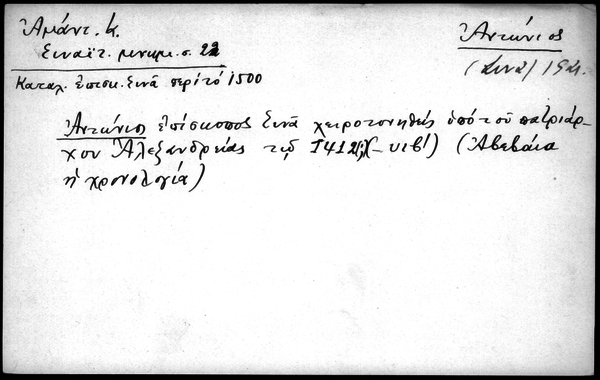 Ἀμάντ. Κ.
Σιναϊτ. μνημ. σ. 22
Καταλ. ἐπισκ. Σινᾶ περὶ τὸ 1500
Ἀντώνιος
(Σινᾶ)
Ἀντώνιος ἐπίσκοπος Σινᾶ χειροτονηθεὶς ὑπὸ τοῦ πατριάρ-
χου Ἀλεξανδρείας τῷ 1412; (– υιβʹ) (Ἀβεβαία
ἡ χρονολογία)